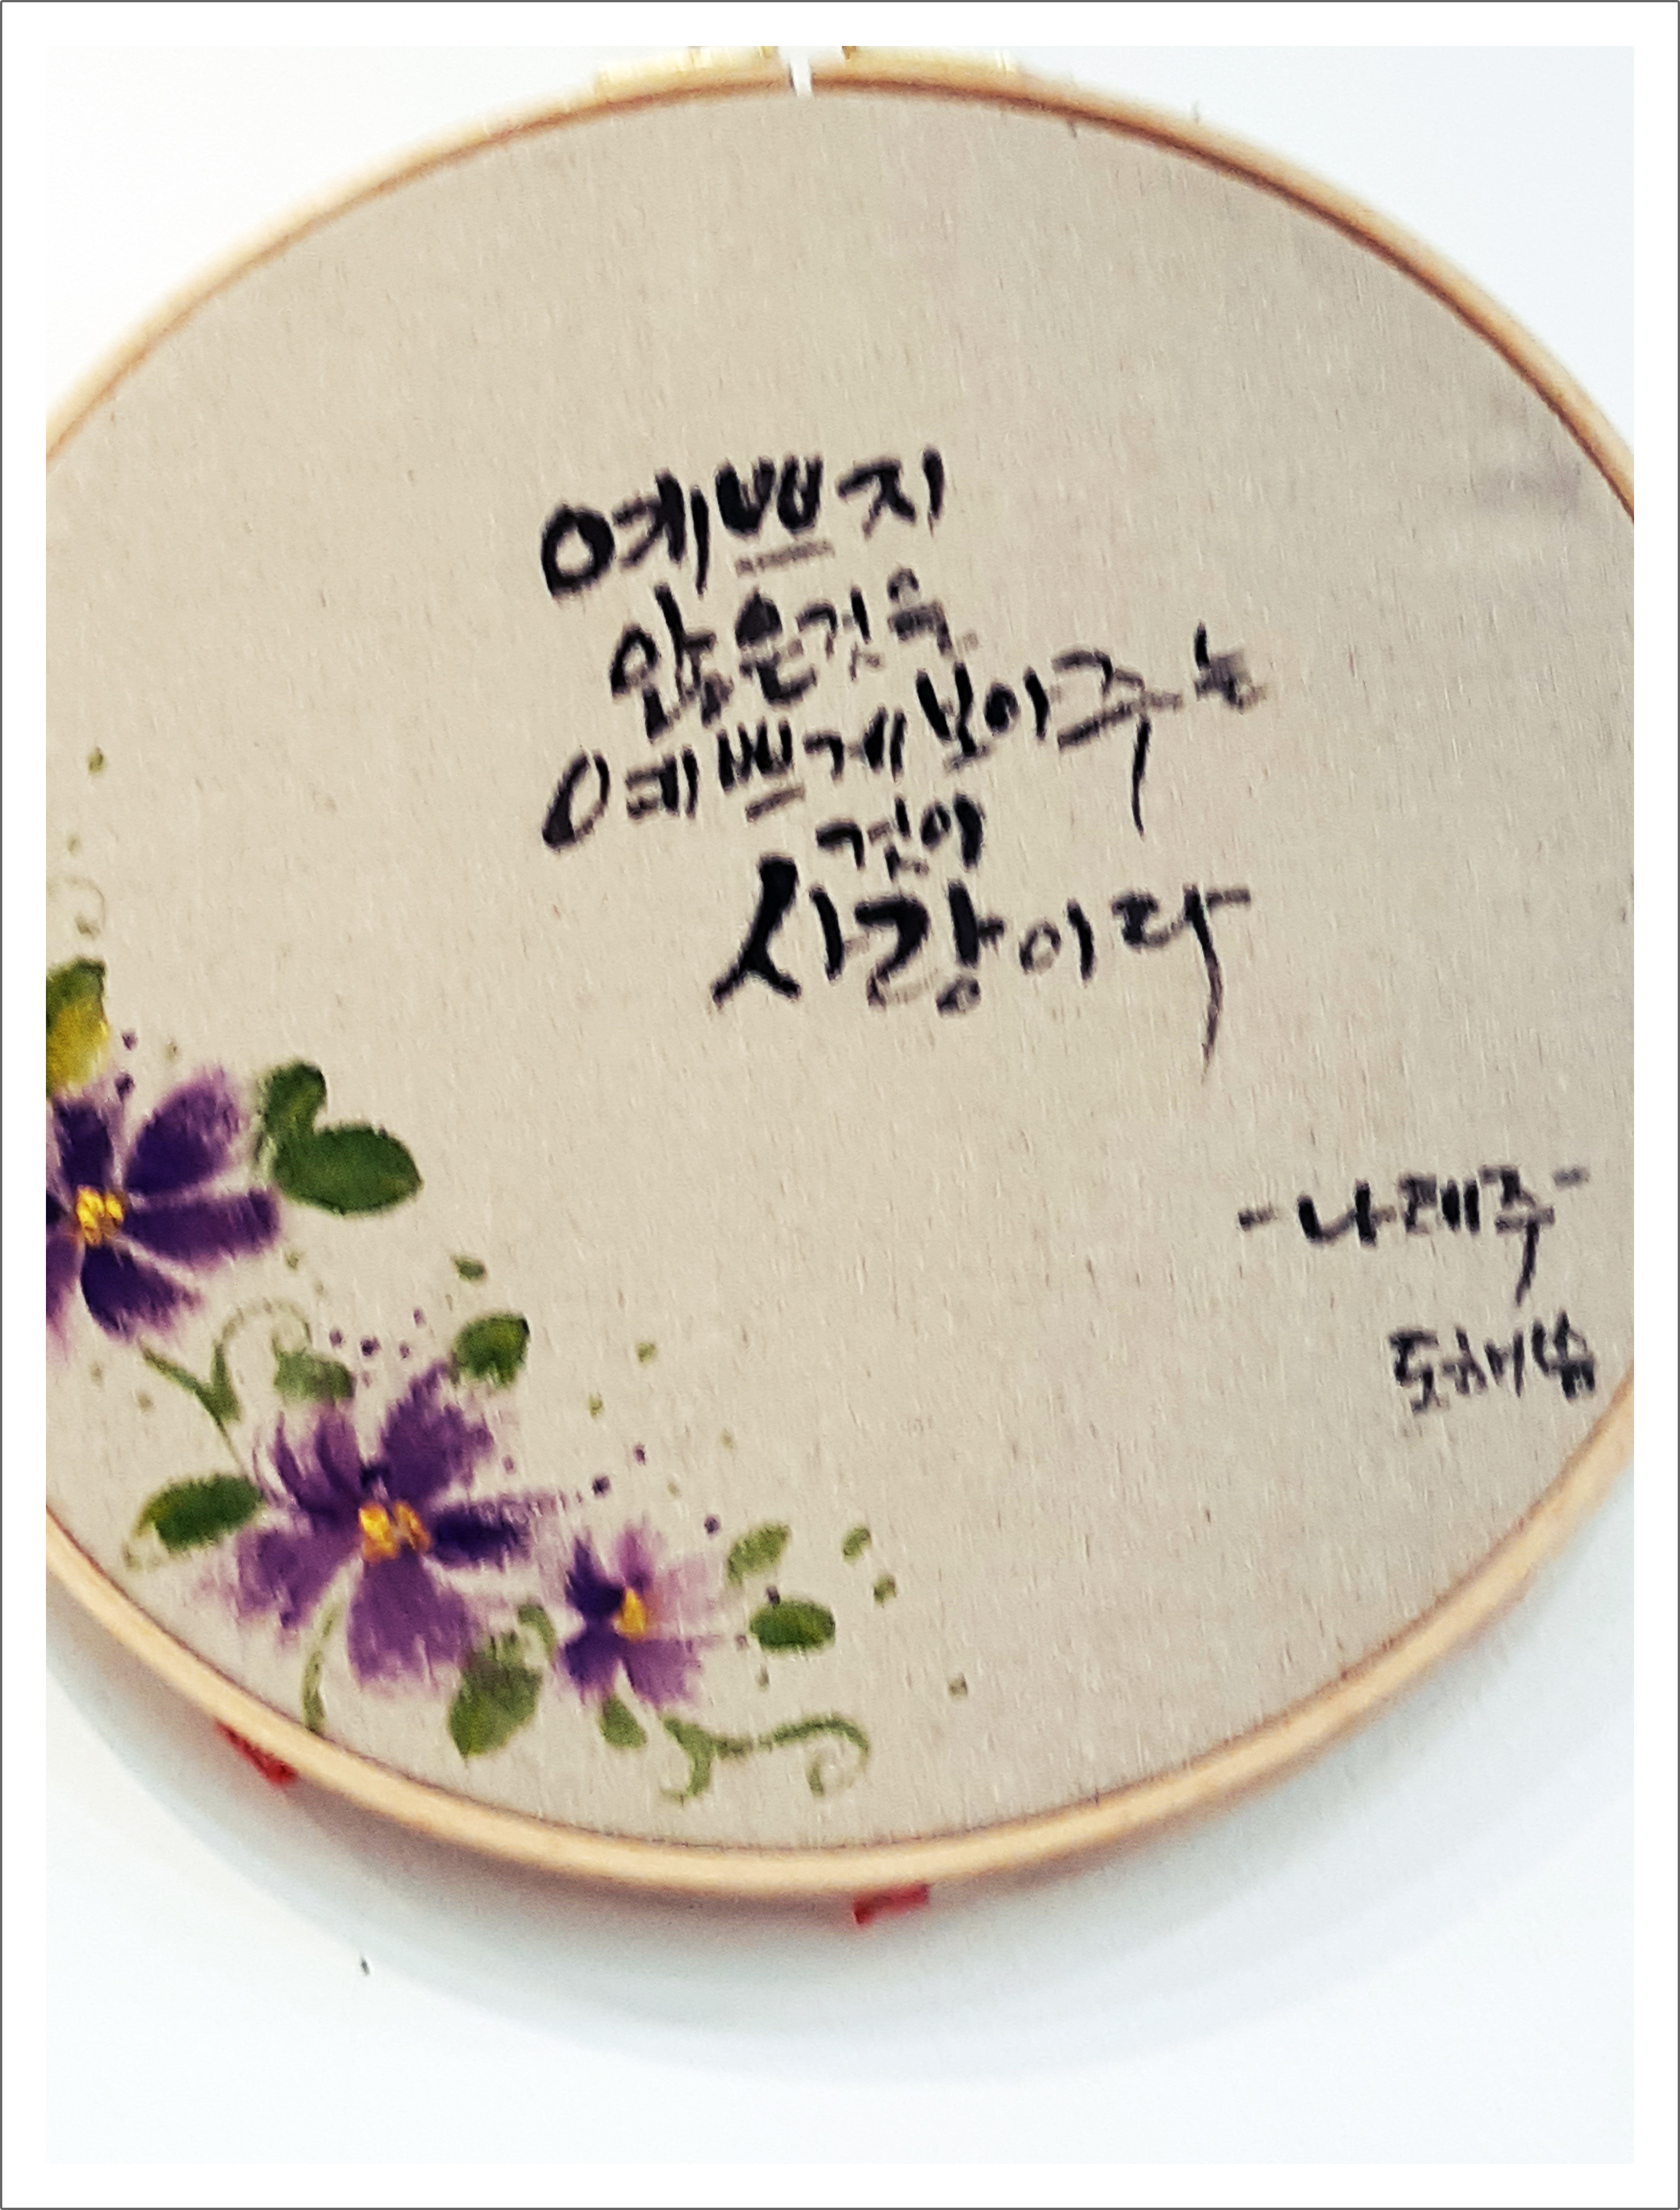 예쁘지
않은것을
예쁘게 보이주는
것이
사랑이다
-나태주-